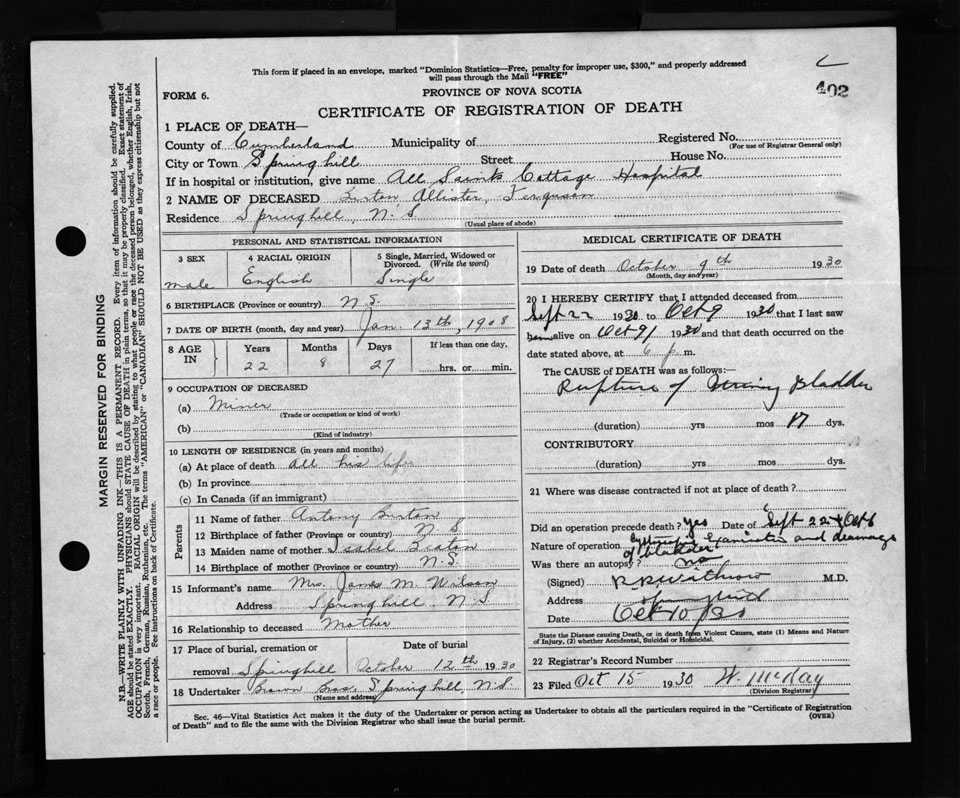 This form if placed in an envelope, marked "Dominion Statistics—Free, penalty for improper use, $300," and properly addressed
will pass through the Mail "FREE"
402
FORM 6.
PROVINCE OF NOVA SCOTIA
CERTIFICATE OF REGISTRATION OF DEATH
1 PLACE OF DEATH—
County of Cumberland Municipality of Registered No.
(For use of Registrar General only)
City or Town Springhill Street House No.
If in hospital or institution, give name All Saints Cottage Hospital
2 NAME OF DECEASED Allister, Ferguson
Residence Springhill, N.S.
(Usual place of abode)
PERSONAL AND STATISTICAL INFORMATION
3 SEX 4 RACIAL ORIGIN 5 Single, Married, Widowed or
Divorced. (Write the word)
male English Single
6 BIRTHPLACE (Province or country) N.S.
7 DATE OF BIRTH (month, day and year) Jan. 13th, 1908
8 AGE IN Years Months Days If less than one day,
22 8 27 hrs. or min.
9 OCCUPATION OF DECEASED
(a) Miner
(Trade or occupation or kind of work)
(b)
(Kind of industry)
10 LENGTH OF RESIDENCE (in years and months)
(a) At place of death all his life
(b) In province
(c) In Canada (if an immigrant)
Parents
11 Name of father Antony Burton
12 Birthplace of father (Province or country) N.S.
13 Maiden name of mother Isabel Beaton
14 Birthplace of mother (Province or country) N.S.
15 Informant's name Mrs. James M. Wilson
Address Springhill, N.S
16 Relationship to deceased Mother
17 Place of burial, cremation or Date of burial
removal Springhill October 12th 1930
18 Undertaker Brown Bros. Springhill, N.S.
(Name and address)
MEDICAL CERTIFICATE OF DEATH
19 Date of death October 9th 1930
(Month, day and year)
20 I HEREBY CERTIFY that I attended deceased from
Sept 22 1930 to Oct 9 1930 that I last saw
him alive on Oct 9 1930 and that death occurred on the
date stated above, at 6 p m.
The CAUSE of DEATH was as follows:—
Rupture of Urinary Bladder
(duration) yrs mos 17 dys.
CONTRIBUTORY
(duration) yrs. mos. dys.
21 Where was disease contracted if not at place of death?
Did an operation precede death? yes Date of Sept 22 & Oct 6
Nature of operation and drainage
of bladder
Was there an autopsy? no
(Signed) M.D.
Address Springhill
Date Oct 10/30
State the Disease causing Death, or in death from Violent Causes, state (1) Means and Nature
of Injury, (2) whether Accidental, Suicidal or Homicidal.
22 Registrar's Record Number
23 Filed Oct 15 1930 W. McKay
(Division Registrar)
Sec. 46—Vital Statistics Act makes it the duty of the Undertaker or person acting as Undertaker to obtain all the particulars required in the "Certificate of Registration
of Death" and to file the same with the Division Registrar who shall issue the burial permit. (OVER)
MARGIN RESERVED FOR BINDING
N.B.—WRITE PLAINLY WITH UNFADING INK—THIS IS A PERMANENT RECORD. Every item of information should be carefully supplied.
AGE should be stated EXACTLY. PHYSICIANS should STATE CAUSE OF DEATH in plain terms, so that it may be properly classified. Exact statement of
OCCUPATION is very important. RACIAL ORIGIN will be described by stating to what people or race the deceased person belonged, whether English, Irish,
Scotch, French, German, Russian, Ruthenian, etc. The terms "AMERICAN" or "CANADIAN" SHOULD NOT BE USED as they express citizenship but not
a race or people. See instructions on back of Certificate.